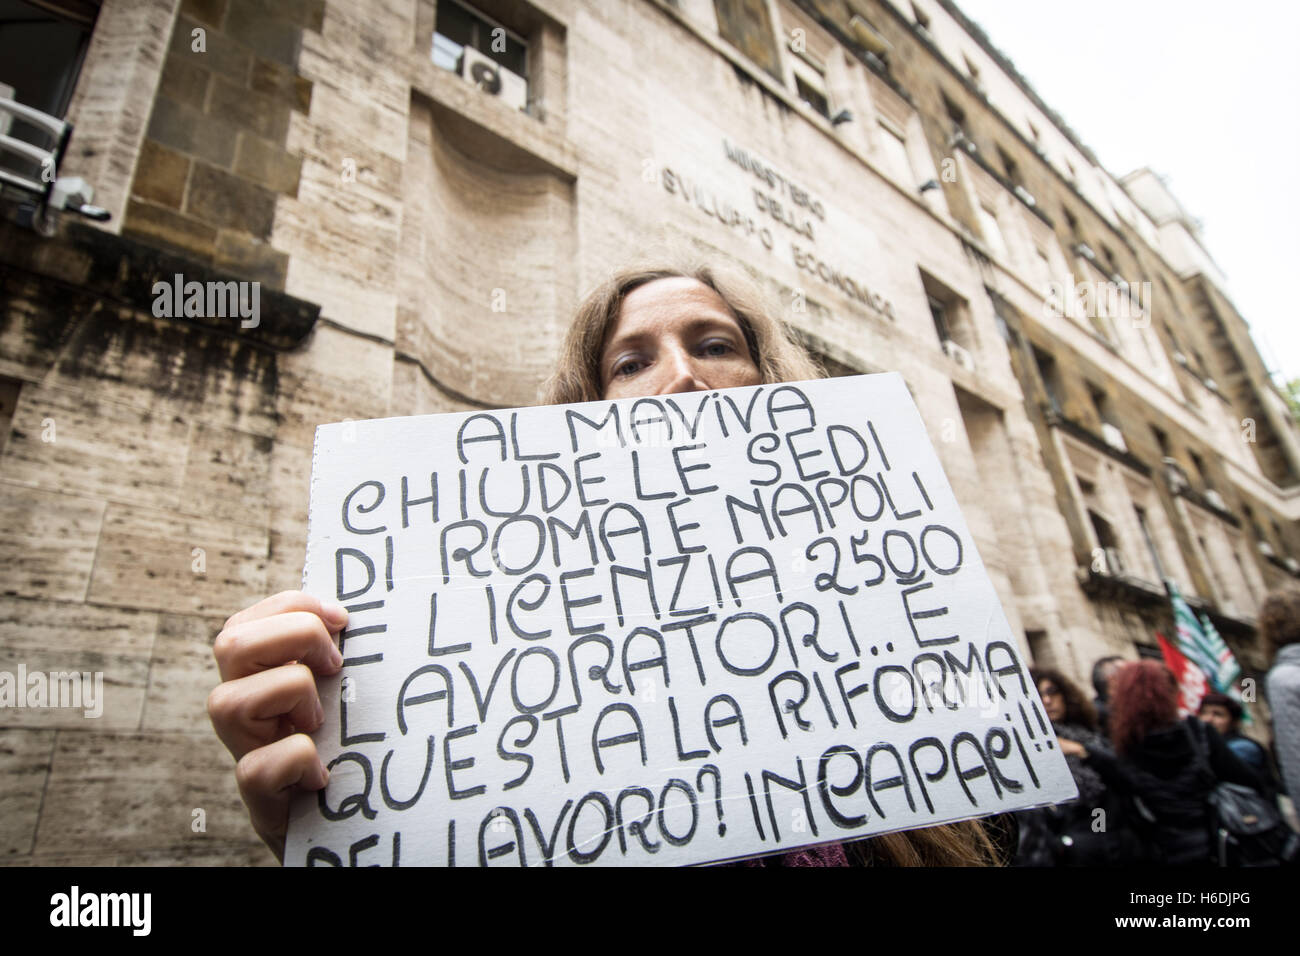 MINISTERO
DELLO
SVILUPPO ECONOMICO
ALMAVIVA
CHIUDE LE SEDI
DI ROMA E NAPOLI
E LICENZIA 2500
LAVORATORI.. È
QUESTA LA RIFORMA
DEL LAVORO? INCAPACI!!
alamy stock photo
H6DJPG
www.alamy.com